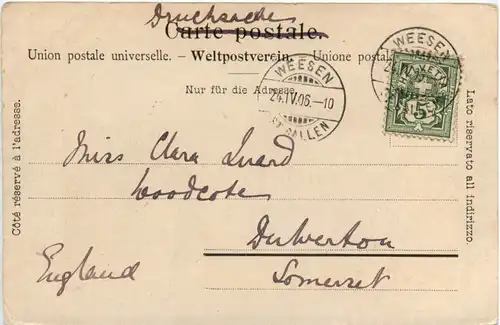 Drucksache
Carte postale.
Union postale universelle. – Weltpostverein. – Unione postale
Nur für die Adresse.
WEESEN
24.IV.06.–10
ST. GALLEN
WEESEN
HELVETIA
5
Côté réservé à l'adresse.
Lato riservato all indirizzo.
Miss Clara
Woodcote
Dulverton
Somerset
England